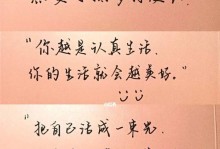 “你越是认真生活，
你的生活就会越美好。”
“把自己活成一束光，